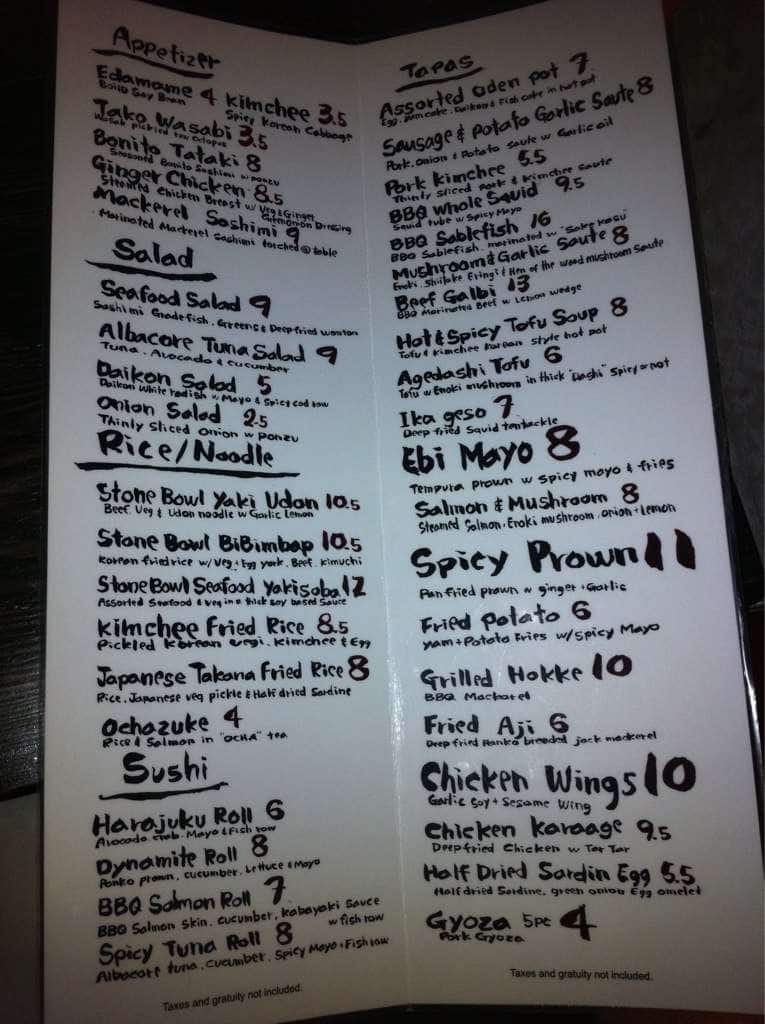 Appetizer
Edamame 4 Kimchee 3.5
Boild Soy Bean Spicy Korean Cabbage
Tako Wasabi 3.5
Wasabi pickled raw Octopus
Bonito Tataki 8
Seasoned Bonito Sashimi w ponzu
Ginger Chicken 8.5
Steamed Chicken Breast w Veg & Ginger Dressing
Mackerel Sashimi 9
Marinated Mackerel Sashimi torched @ table
Salad
Seafood Salad 9
Sashimi Grade fish, Greens & Deep fried wonton
Albacore Tuna Salad 9
Tuna, Avocado & cucumber
Daikon Salad 5
Daikon White radish w Mayo & Spicy cod row
Onion Salad 2.5
Thinly Sliced Onion w Ponzu
Rice/Noodle
Stone Bowl Yaki Udon 10.5
Beef, Veg & Udon noodle w Garlic Lemon
Stone Bowl BiBimbap 10.5
Korean fried rice w/ Veg + Egg york. Beef. kimuchi
Stone Bowl Seafood Yakisoba 12
Assorted Seafood & Veg in a thick soy based Sauce
Kimchee Fried Rice 8.5
Pickled Korean vegi. Kimchee & Egg
Japanese Takana Fried Rice 8
Rice, Japanese veg pickle & Half dried Sardine
Ochazuke 4
Rice & Salmon in "OCHA" tea
Sushi
Harajuku Roll 6
Avocado Crab. Mayo & Fish row
Dynamite Roll 8
Panko prawn, cucumber, Lettuce & Mayo
BBQ Salmon Roll 7
BBQ Salmon Skin, Cucumber, Kabayaki Sauce
w fish row
Spicy Tuna Roll 8
Albacore tuna, cucumber, Spicy Mayo + Fish row
Taxes and gratuity not included.
Tapas
Assorted Oden pot 7
Egg, yam cake, Daikon & Fish cake in hot pot
Sausage & Potato Garlic Saute 8
Pork, onion & Potato saute w Garlic oil
Pork Kimchee 5.5
Thinly sliced pork & Kimchee saute
BBQ Whole Squid 9.5
Squid tube w Spicy Mayo
BBQ Sablefish 16
BBQ Sablefish, marinated w "Sake Kasu"
Mushroom & Garlic Saute 8
Enoki, Shiitake Eringi & Hen of the wood mushroom Saute
Beef Galbi 13
BBQ Marinated Beef w Lemon wedge
Hot & Spicy Tofu Soup 8
Tofu & Kimchee Korean style hot pot
Agedashi Tofu 6
Tofu w Enoki mushroom in thick "Dashi" Spicy or not
Ika geso 7
Deep fried Squid tentackle
Ebi Mayo 8
Tempura prawn w spicy mayo & fries
Salmon & Mushroom 8
Steamed Salmon, Enoki mushroom, onion + Lemon
Spicy Prawn 11
Pan fried prawn w ginger + Garlic
Fried Potato 6
Yam + Potato Fries w/ Spicy Mayo
Grilled Hokke 10
BBQ Mackerel
Fried Aji 6
Deep fried Panko breaded jack mackerel
Chicken Wings 10
Garlic Soy + Sesame Wing
Chicken Karaage 9.5
Deep fried Chicken w Tar Tar
Half Dried Sardin Egg 5.5
Half dried Sardine, green onion Egg omelet
Gyoza 5pc 4
Pork Gyoza
Taxes and gratuity not included.